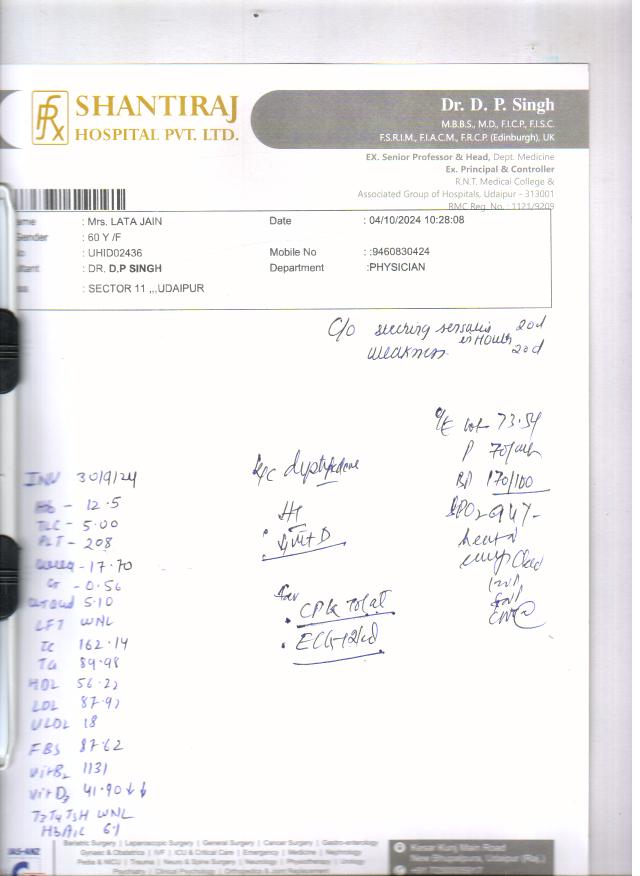 SHANTIRAJ
HOSPITAL PVT. LTD.
Dr. D. P. Singh
M.B.B.S., M.D., F.I.C.P., F.I.S.C.
F.S.R.I.M., F.I.A.C.M., F.R.C.P. (Edinburgh), UK
EX. Senior Professor & Head, Dept. Medicine
Ex. Principal & Controller
R.N.T. Medical College &
Associated Group of Hospitals, Udaipur - 313001
RMC Reg. No. : 1121/9209
ame : Mrs. LATA JAIN Date : 04/10/2024 10:28:08
Gender : 60 Y /F
: UHID02436 Mobile No : :9460830424
ltant : DR. D.P SINGH Department :PHYSICIAN
: SECTOR 11 ,,,UDAIPUR
C/o 20d
in Mouth
weakness 20d
O/E wt 73.54
P 70/
BP 170/100
SPO2 94%
Heart
K/c
HT
↓ Vit D
CPK Total
ECG
INV 30/9/24
Hb - 12.5
TLC - 5.00
PLT - 208
Urea - 17.70
Cr - 0.56
5.10
LFT WNL
TC 162.14
TG 89.98
HDL 56.22
LDL 87.92
VLDL 18
FBS 87.62
Vit B12 1131
Vit D3 41.90 ↓↓
T3 T4 TSH WNL
HbA1C 6.1
Bariatric Surgery | Laparoscopic Surgery | General Surgery | Cancer Surgery | Gastro-enterology
Gynaec & Obstatrics | IVF | ICU & Critical Care | Emergency | Medicine | Nephrology
Pedia & NICU | Trauma | Neuro & Spine Surgery | Neurology | Physiotherapy | Urology
Psychiatry | Clinical Psychology | Orthopedics & Joint Replacement
Kesar Kunj Main Road
New Bhupalpura, Udaipur (Raj.)